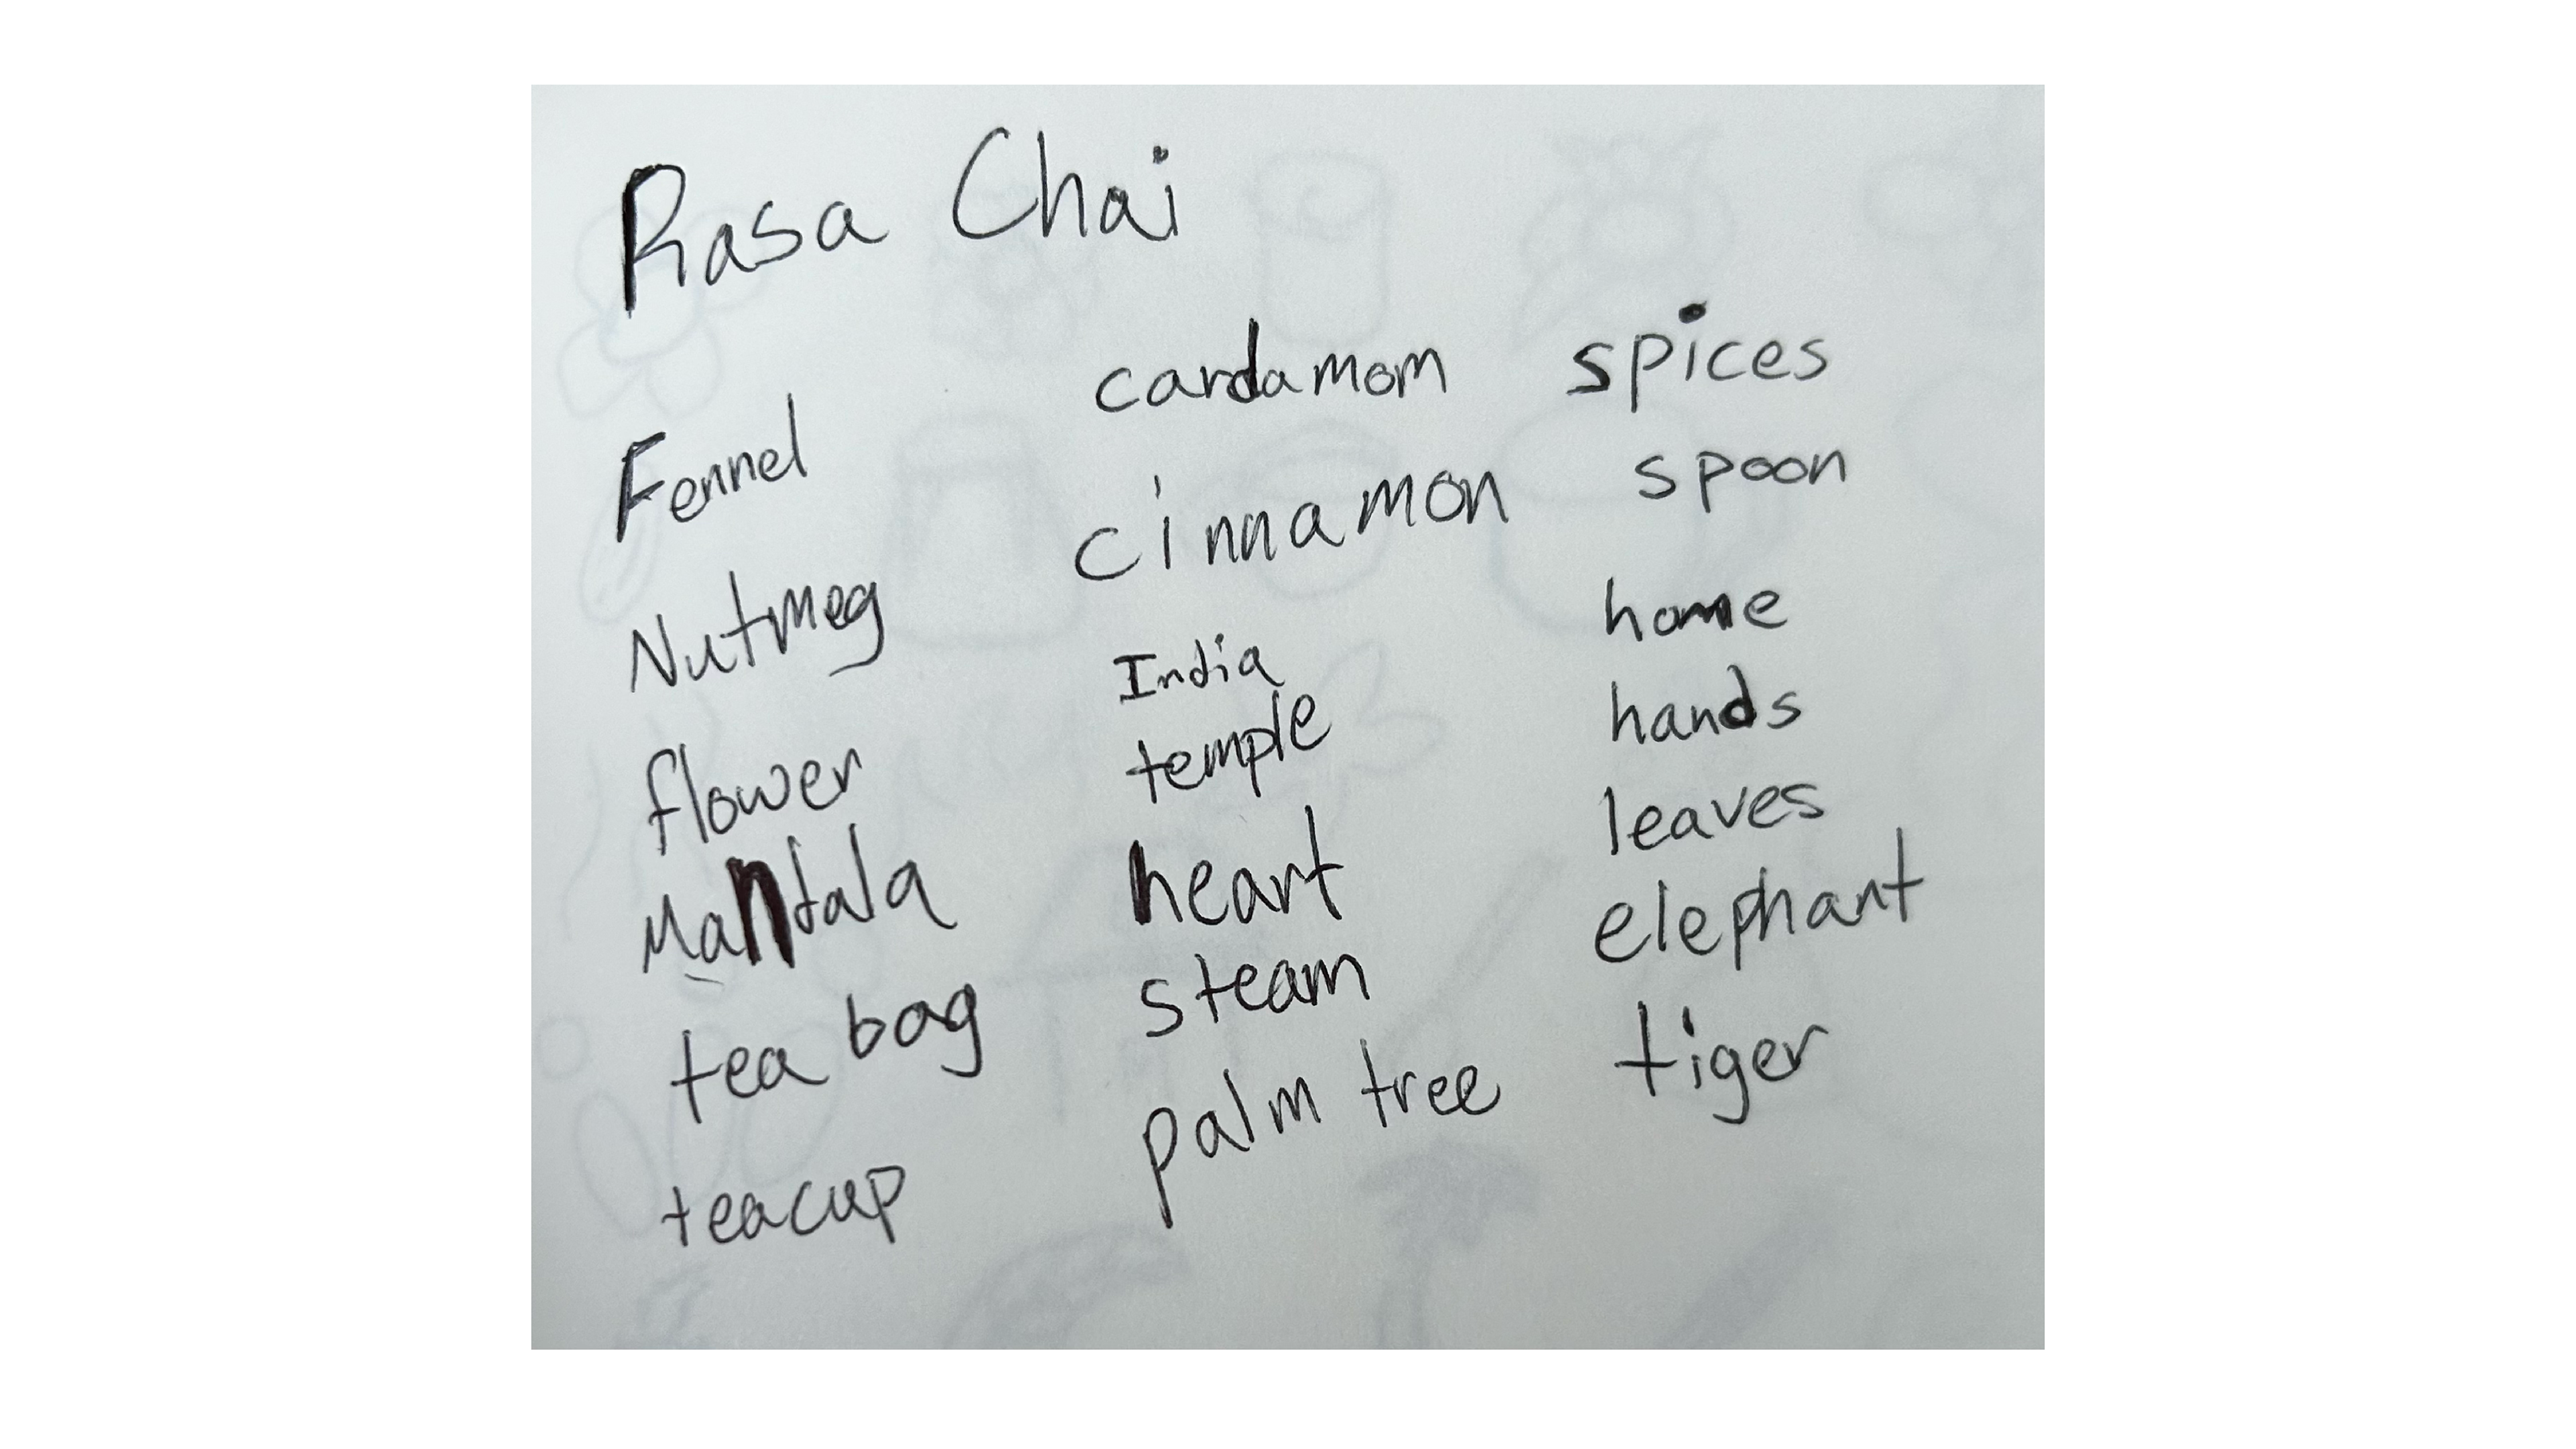 Rasa Chai
Fennel
Nutmeg
flower
Mandala
tea bag
teacup
cardamom
cinnamon
India
temple
heart
steam
palm tree
spices
spoon
home
hands
leaves
elephant
tiger